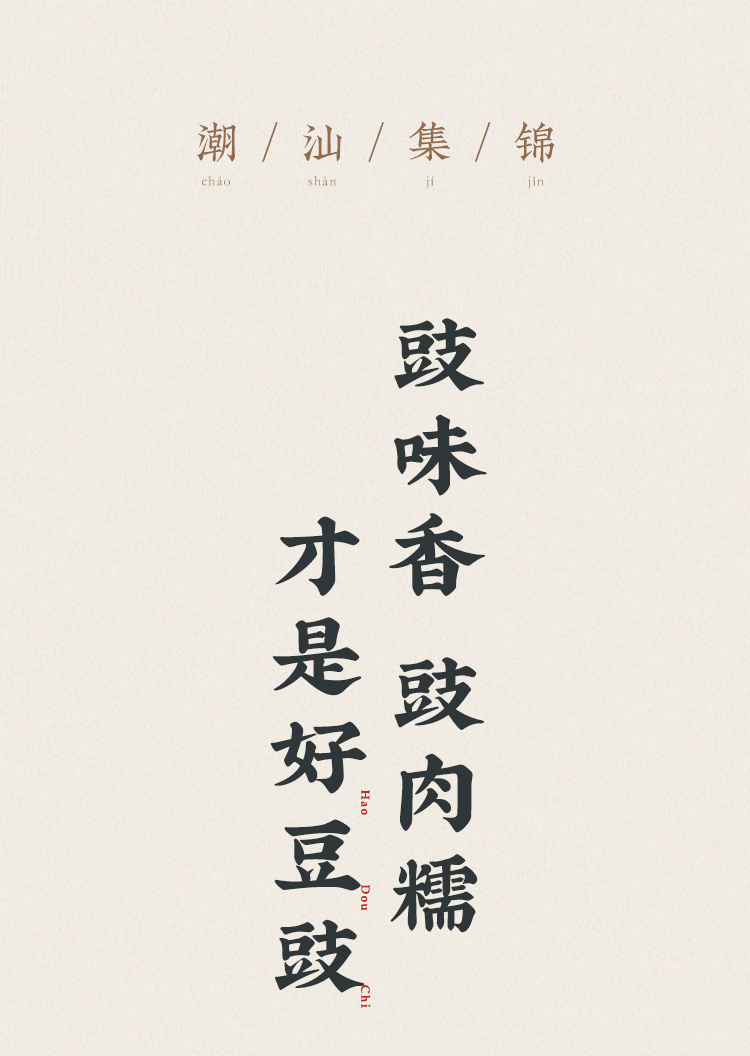 潮/汕/集/锦
cháo shàn jí jǐn
豉味香 豉肉糯
才是好豆豉
Hao Dou Chi